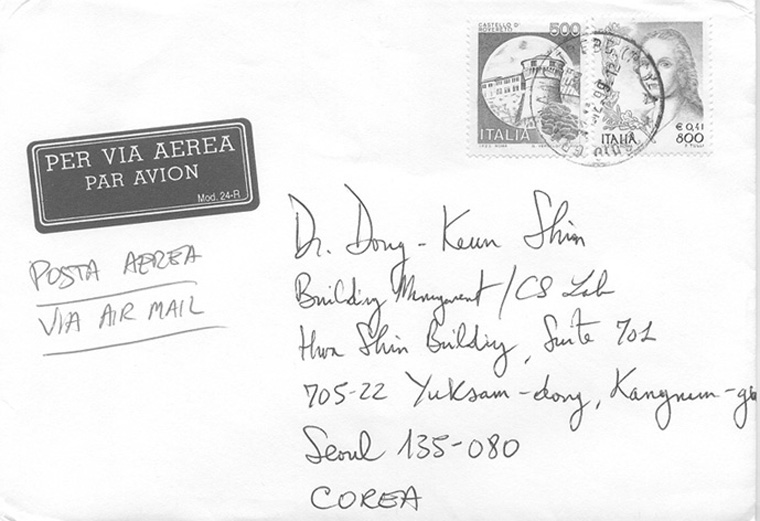 CASTELLO DI
ROVERETO
500
ITALIA
ITALIA
€ 0,41
800
PER VIA AEREA
PAR AVION
Mod. 24-R
POSTA AEREA
VIA AIR MAIL
Dr. Dong-Keun Shin
Building Management/CS Lab
Hwa Shin Building, Suite 701
705-22 Yuksam-dong, Kangnam-gu
Seoul 135-080
COREA